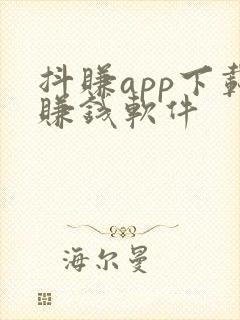 抖賺app下載
賺錢軟件
海尔曼